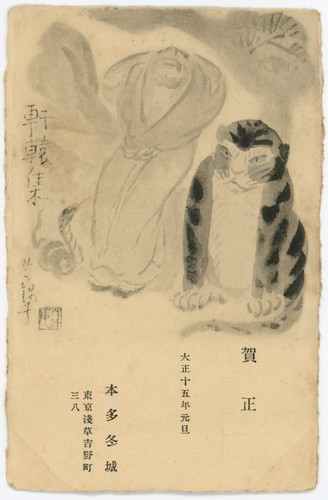 賀正
大正十五年元旦
本多冬城
東京淺草吉野町
三八
軒轅集